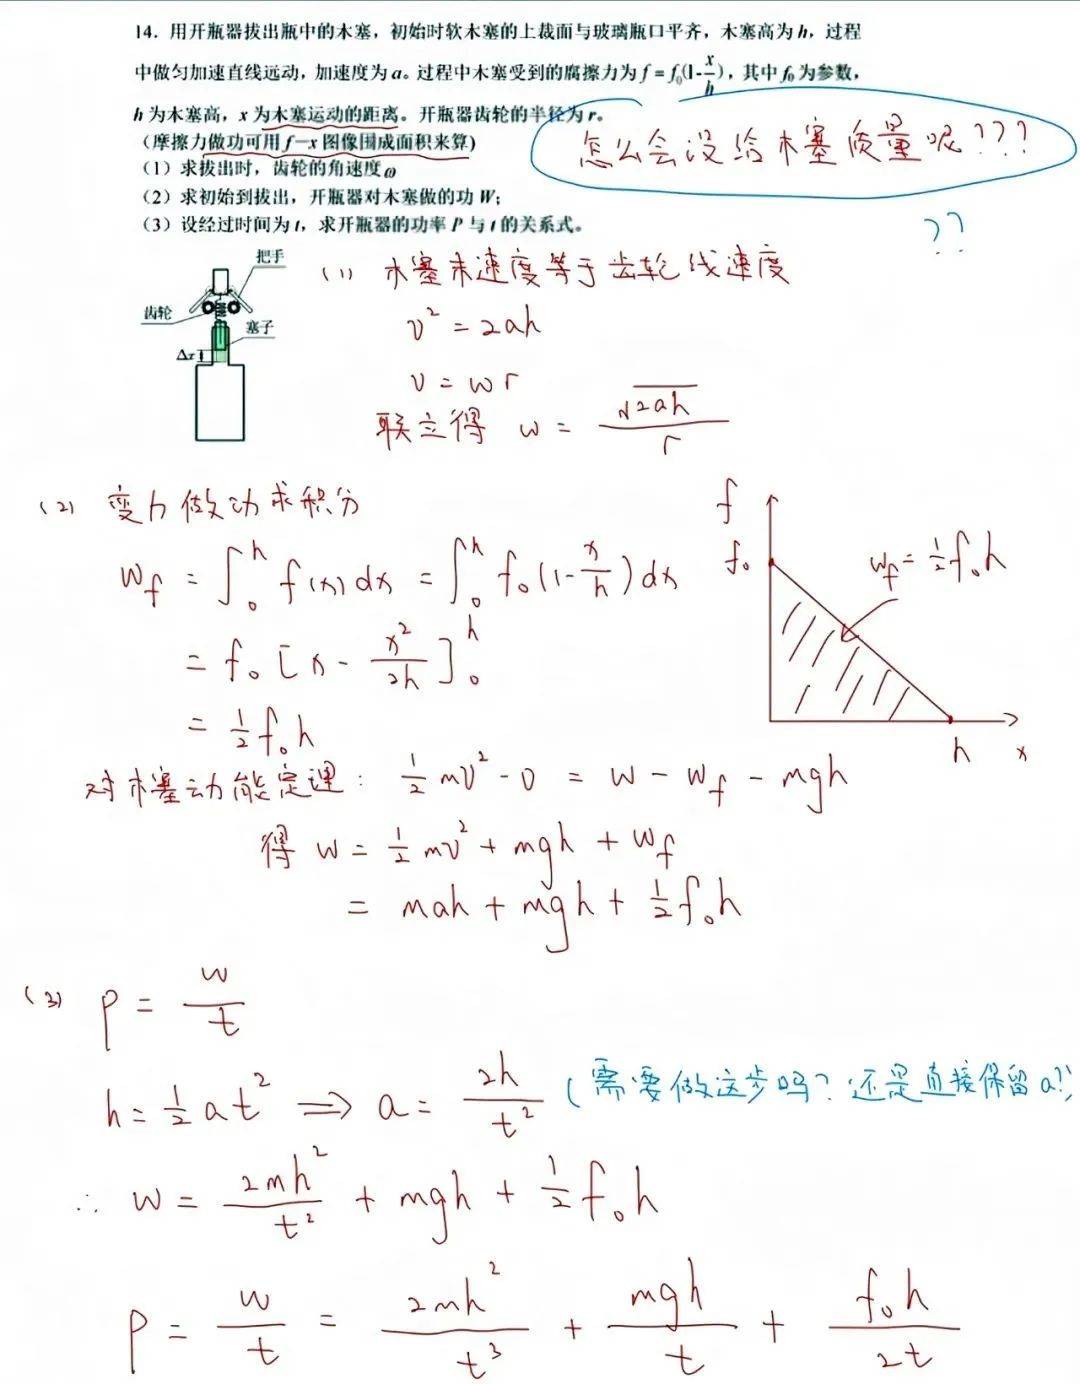 14. 用开瓶器拔出瓶中的木塞，初始时软木塞的上裁面与玻璃瓶口平齐，木塞高为h，过程
中做匀加速直线远动，加速度为a。过程中木塞受到的腐擦力为f=f₀(1-x/h)，其中f₀为参数，
h为木塞高，x为木塞运动的距离。开瓶器齿轮的半径为r。
(摩擦力做功可用f—x图像围成面积来算)
怎么会没给木塞质量呢???
(1) 求拔出时，齿轮的角速度ω
(2) 求初始到拔出，开瓶器对木塞做的功W；
(3) 设经过时间为t，求开瓶器的功率P与t的关系式。
??
把手
齿轮
塞子
Δx
(1) 木塞末速度等于齿轮线速度
v²=2ah
v=ωr
联立得 ω=√2ah/r
(2) 变力做功求积分
W_f=∫₀ʰf(x)dx=∫₀ʰf₀(1-x/h)dx
=f₀[x-x²/2h]₀ʰ
=½f₀h
f
f₀
W_f=½f₀h
h
x
对木塞动能定理: ½mv²-0=W-W_f-mgh
得 W=½mv²+mgh+W_f
=mah+mgh+½f₀h
(3) P=W/t
h=½at² ⟹ a=2h/t² (需要做这步吗? 还是直接保留a?)
∴ W=2mh²/t²+mgh+½f₀h
P=W/t=2mh²/t³+mgh/t+f₀h/2t